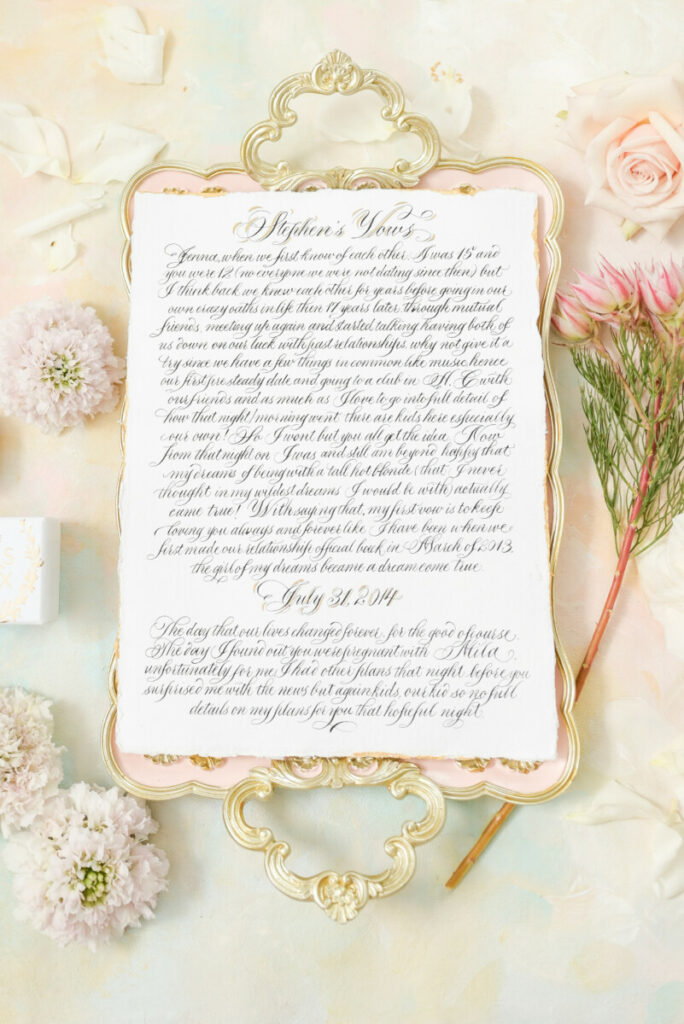 Stephen's Vows
Jenna, when we first know of each other, I was 15 and
you were 12 (no everyone we were not dating since then) but
I think back we knew each other for years before going in our
own crazy oaths in life then 17 years later, through mutual
friends, meeting up again and started talking having both of
us down on our luck with past relationships, why not give it a
try since we have a few things in common like music hence
our first pre steady date and going to a club in A.C with
our friends and as much as I love to go into full detail of
how that night/morning went, there are kids here especially
our own! So, I wont but you all get the idea. Now
from that night on I was and still am beyond happy that
my dreams of being with a tall hot blonde (that I never
thought in my wildest dreams I would be with) actually
came true! With saying that, my first vow is to keep
loving you always and forever like I have been when we
first made our relationship official back in March of 2013,
the girl of my dreams became a dream come true.
July 31, 2014
The day that our lives changed forever, for the good of course.
The day I found out you were pregnant with Mila,
unfortunately for me, I had other plans that night before you
surprised me with the news but again kids, our kid so no full
details on my plans for you that hopeful night.